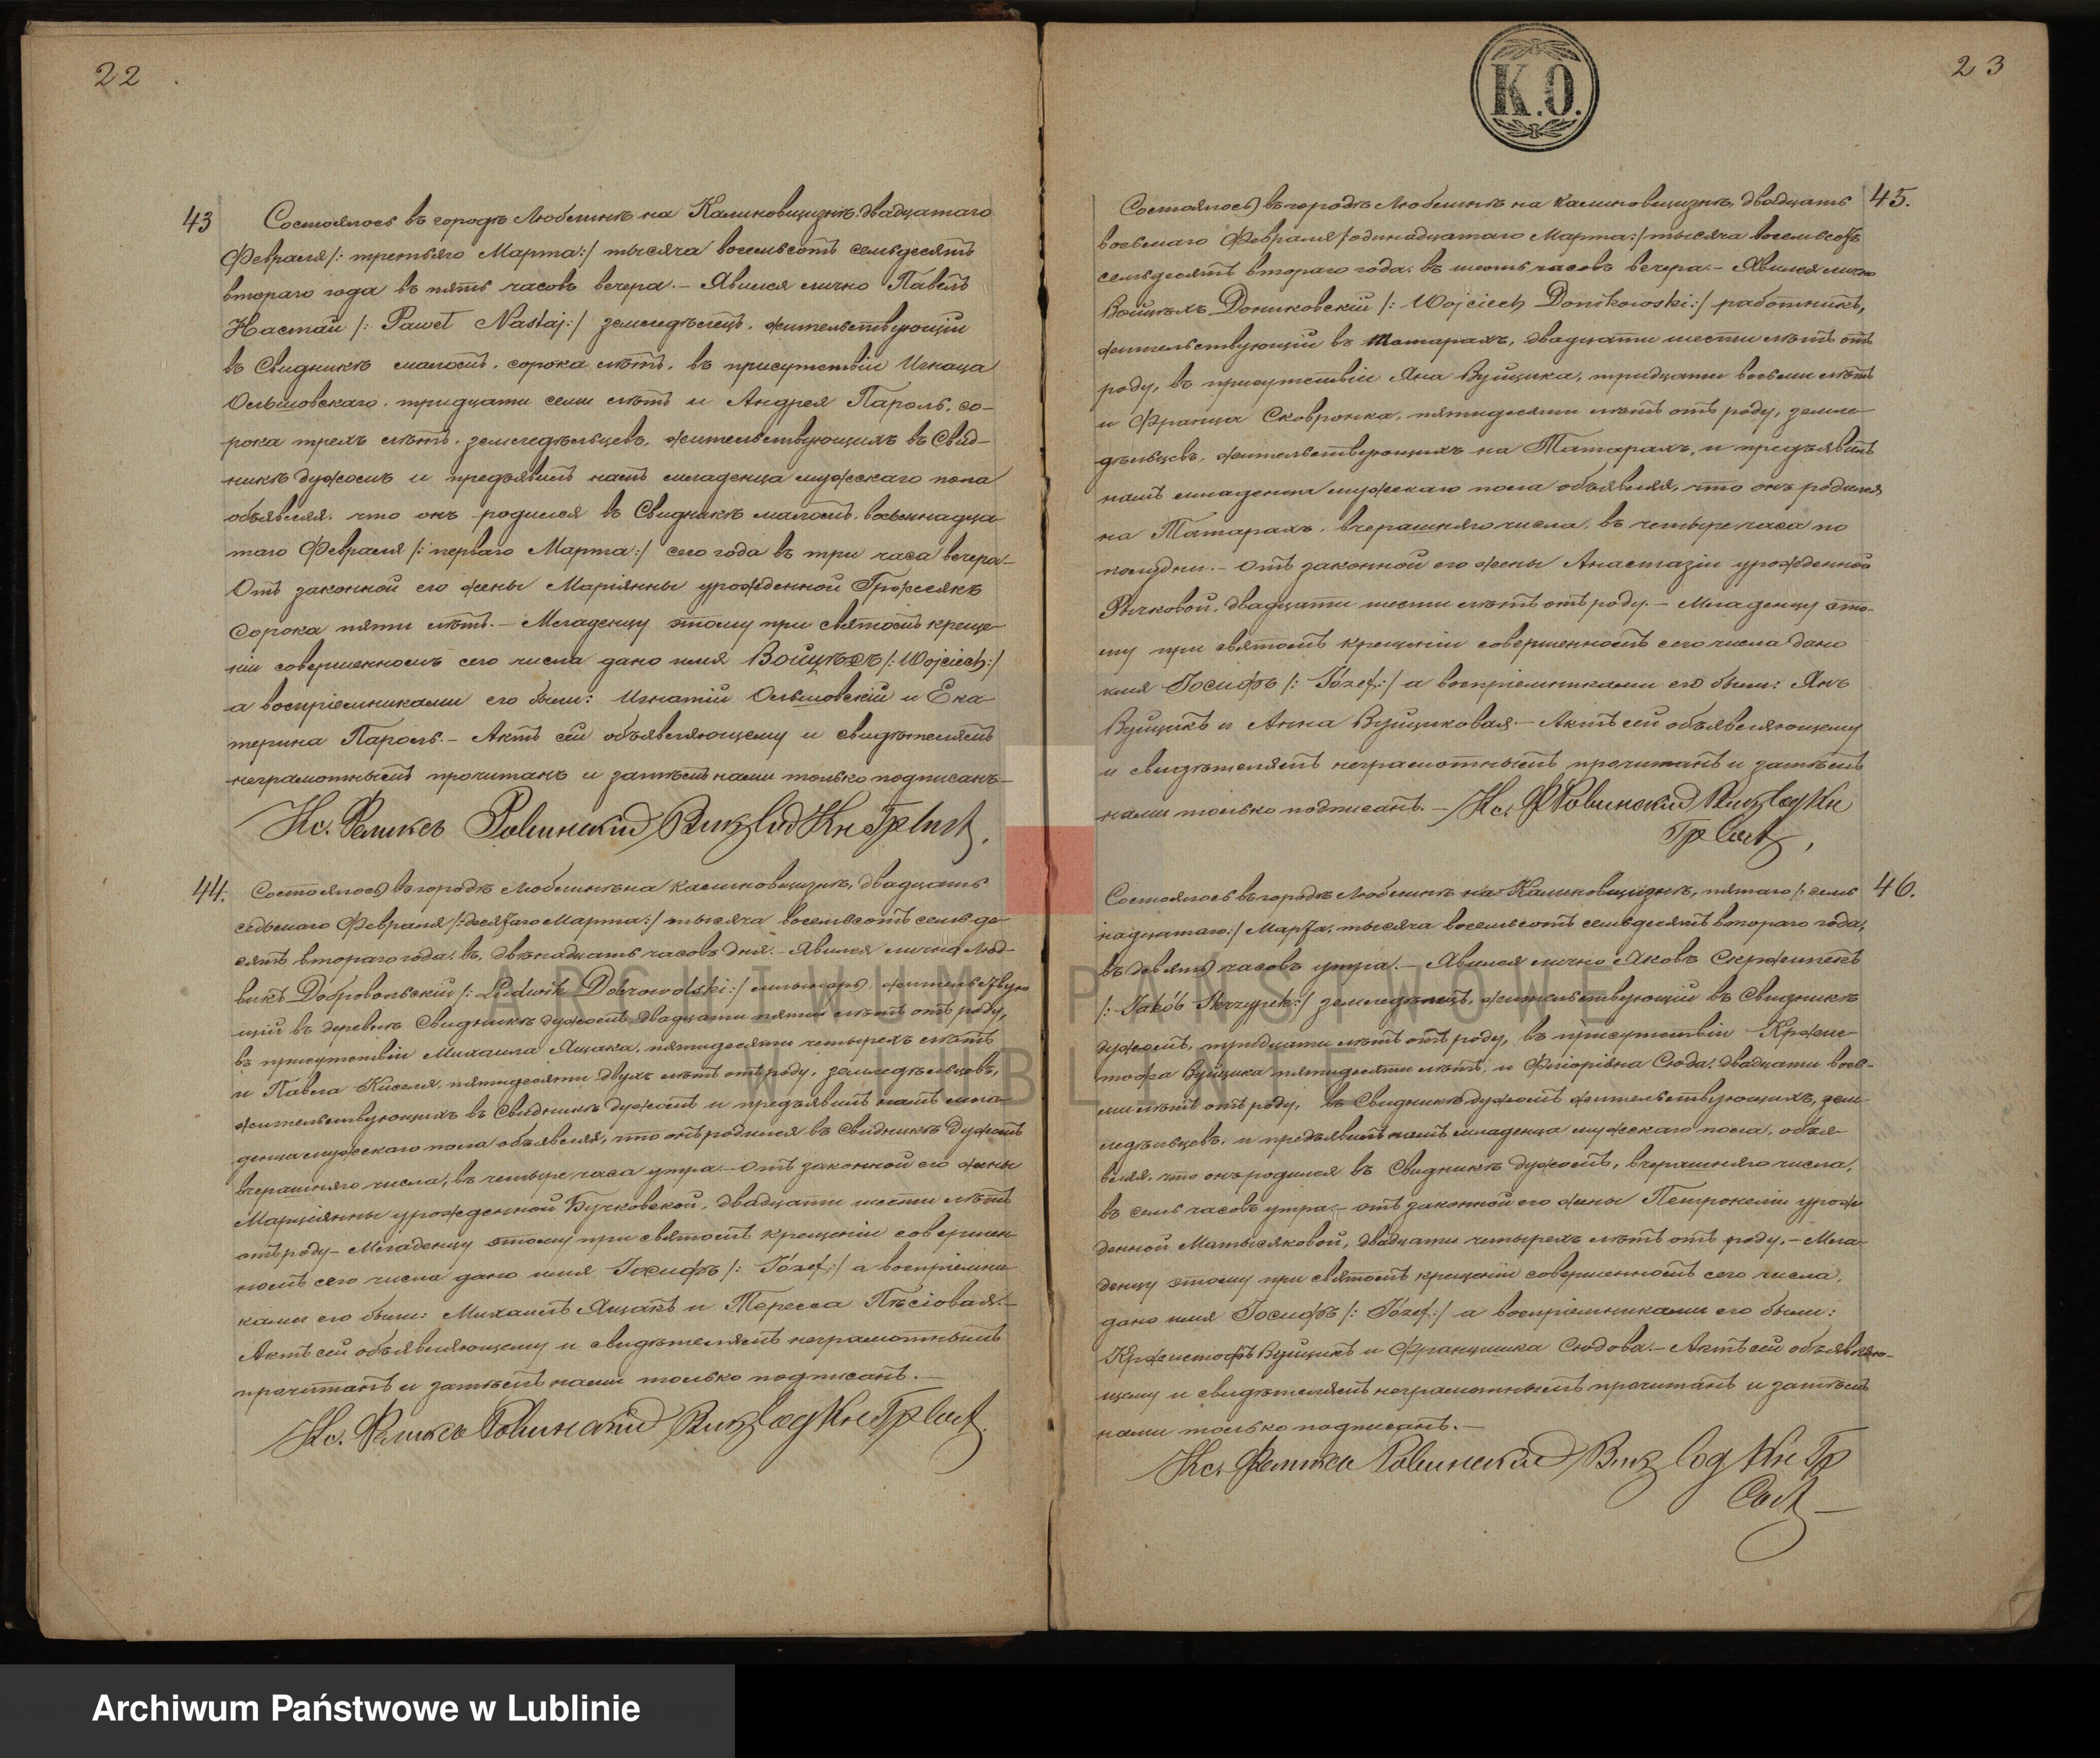 22
43
Состоялось въ городѣ Люблинѣ на Калиновщизнѣ, двадцатаго
Февраля /: третьяго Марта :/ тысяча восемьсотъ семьдесятъ
втораго года въ пять часовъ вечера. – Явился лично Павелъ
Настай /: Paweł Nastaj :/ земледѣлецъ, жительствующій
въ Свидникѣ маломъ, сорока лѣтъ, въ присутствіи Игнаца
Ольшовскаго, тридцати семи лѣтъ и Андрея Пароль, со-
рока трехъ лѣтъ, земледѣльцевъ, жительствующихъ въ Свид-
никѣ дужомъ и предъявилъ намъ младенца мужескаго пола
объявляя, что онъ родился въ Свидникѣ маломъ, восемнадца-
таго Февраля /: перваго Марта :/ сего года въ три часа вечера –
Отъ законной его жены Маріянны урожденной Гржесякъ
сорока пяти лѣтъ. – Младенцу этому при святомъ креще-
ніи совершенномъ сего числа дано имя Войцѣхъ /: Wojciech :/
а воспріемниками его были: Игнатій Ольшовскій и Ека-
терина Пароль. – Актъ сей объявляющему и свидѣтелямъ
неграмотнымъ прочитанъ и затѣмъ нами только подписанъ –
Кс. Феликсъ
44.
Состоялось въ городѣ Люблинѣ на Калиновщизнѣ, двадцать
седьмаго Февраля /: десятаго Марта :/ тысяча восемьсотъ семьде-
сятъ втораго года, въ двѣнадцать часовъ дня. – Явился лично Люд-
викъ Добровольскій /: Ludwik Dobrowolski :/ мѣльникъ, жительствую-
щій въ деревнѣ Свидникѣ дужомъ двадцати пяти лѣтъ отъ роду,
въ присутствіи Михаила Ящака, пятидесяти четырехъ лѣтъ
и Павла Киселя, пятидесяти двухъ лѣтъ отъ роду, земледѣльцевъ,
жительствующихъ въ Свидникѣ дужомъ и предъявилъ намъ мла-
денца мужескаго пола объявляя, что онъ родился въ Свидникѣ дужомъ
вчерашняго числа, въ четыре часа утра. – Отъ законной его жены
Марціянны урожденной Бучковской, двадцати шести лѣтъ
отъ роду – Младенцу этому при святомъ крещеніи совершен-
номъ сего числа дано имя Іосифъ /: Józef :/ а воспріемни-
ками его были: Михаилъ Ящакъ и Тересса
Актъ сей объявляющему и свидѣтелямъ неграмотнымъ
прочитанъ и затѣмъ нами только подписанъ. –
Кс. Феликсъ
K.O.
23
45.
Состоялось въ городѣ Люблинѣ на Калиновщизнѣ, двадцать
восьмаго Февраля /: одинадцатаго Марта :/ тысяча восемьсотъ
семьдесятъ втораго года, въ шесть часовъ вечера. – Явился лично
Войцѣхъ Дониковскій /: Wojciech Donikowski :/ работникъ,
жительствующій въ Татарахъ, двадцати шести лѣтъ отъ
роду, въ присутствіи Яна Вуйцика, тридцати восьми лѣтъ
и Франца Сковронка, пятидесяти лѣтъ отъ роду, земле-
дѣльцевъ, жительствующихъ на Татарахъ, и предъявилъ
намъ младенца мужескаго пола объявляя, что онъ родился
на Татарахъ, вчерашняго числа, въ четыре часа по
полудни. – Отъ законной его жены Анастазіи урожденной
двадцати шести лѣтъ отъ роду. – Младенцу это-
му при святомъ крещеніи совершенномъ сего числа дано
имя Іосифъ /: Józef :/ а воспріемниками его были: Янъ
Вуйцикъ и Анна Вуйциковая – Актъ сей объявляющему
и свидѣтелямъ неграмотнымъ прочитанъ и затѣмъ
нами только подписанъ. – Кс.
46.
Состоялось въ городѣ Люблинѣ на Калиновщизнѣ, пятаго /: семь-
надцатаго :/ Марта, тысяча восемьсотъ семьдесятъ втораго года,
въ девять часовъ утра. – Явился лично Яковъ Скржипекъ
/: Jakób Skrzypek :/ земледѣлецъ, жительствующій въ Свидникѣ
дужомъ, тридцати лѣтъ отъ роду, въ присутствіи Кржис-
тофа Вуйцика пятидесяти лѣтъ, и Флоріяна Сюда, двадцати вось-
ми лѣтъ отъ роду, въ Свидникѣ дужомъ жительствующихъ, зем-
ледѣльцевъ, и предъявилъ намъ младенца мужескаго пола, объя-
вляя, что онъ родился въ Свидникѣ дужомъ, вчерашняго числа,
въ семь часовъ утра, – отъ законной его жены Петронели урож-
денной Матысяковой, двадцати четырехъ лѣтъ отъ роду. – Мла-
денцу этому при святомъ крещеніи совершенномъ сего числа,
дано имя Іосифъ /: Józef :/ а воспріемниками его были:
Кржистофъ Вуйцикъ и Францишка Сюдова. – Актъ сей объявляю-
щему и свидѣтелямъ неграмотнымъ прочитанъ и затѣмъ
нами только подписанъ. –
Кс. Феликсъ
ARCHIWUM PAŃSTWOWE
W LUBLINIE
Archiwum Państwowe w Lublinie